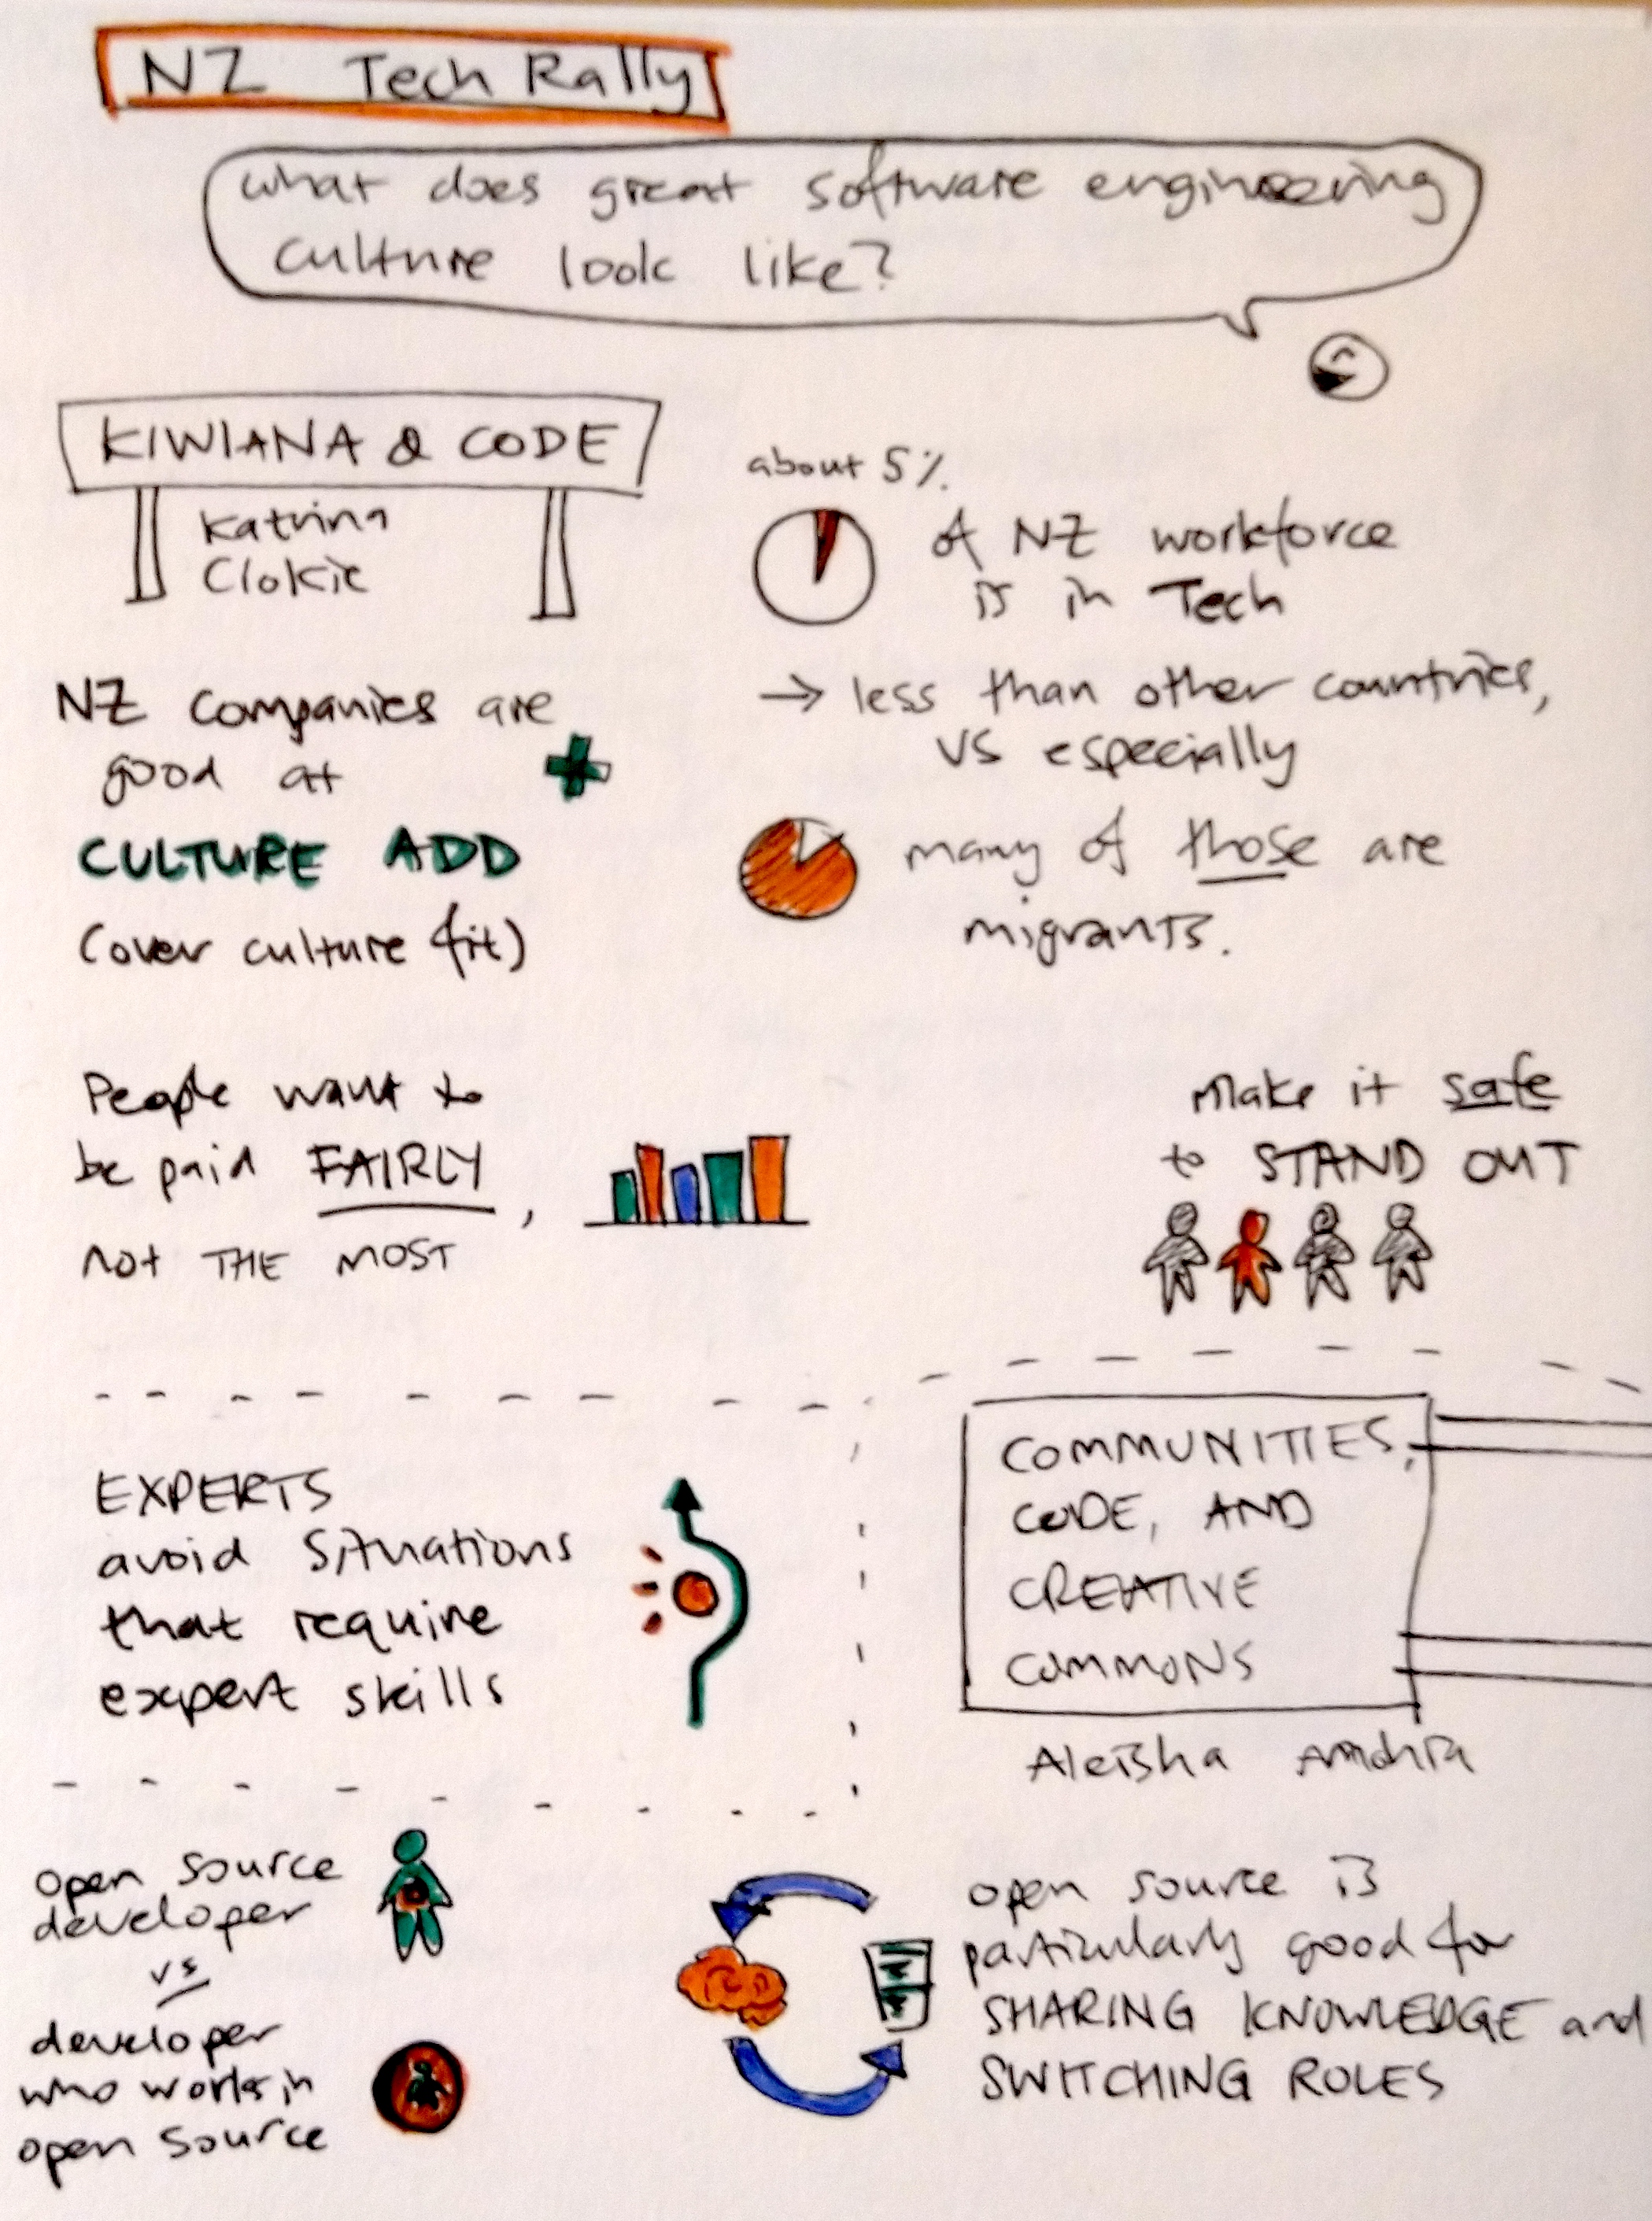 NZ Tech Rally
what does great software engineering
culture look like?
KIWIANA & CODE
Katrina
Clokie
about 5%
of NZ workforce
is in Tech
→ less than other countries,
US especially
many of those are
migrants.
NZ companies are
good at
CULTURE ADD
(over culture fit)
People want to
be paid FAIRLY,
not THE MOST
make it safe
to STAND OUT
EXPERTS
avoid situations
that require
expert skills
COMMUNITIES,
CODE, AND
CREATIVE
COMMONS
Aleisha Amohia
open source
developer
vs
developer
who works in
open source
open source is
particularly good for
SHARING KNOWLEDGE and
SWITCHING ROLES